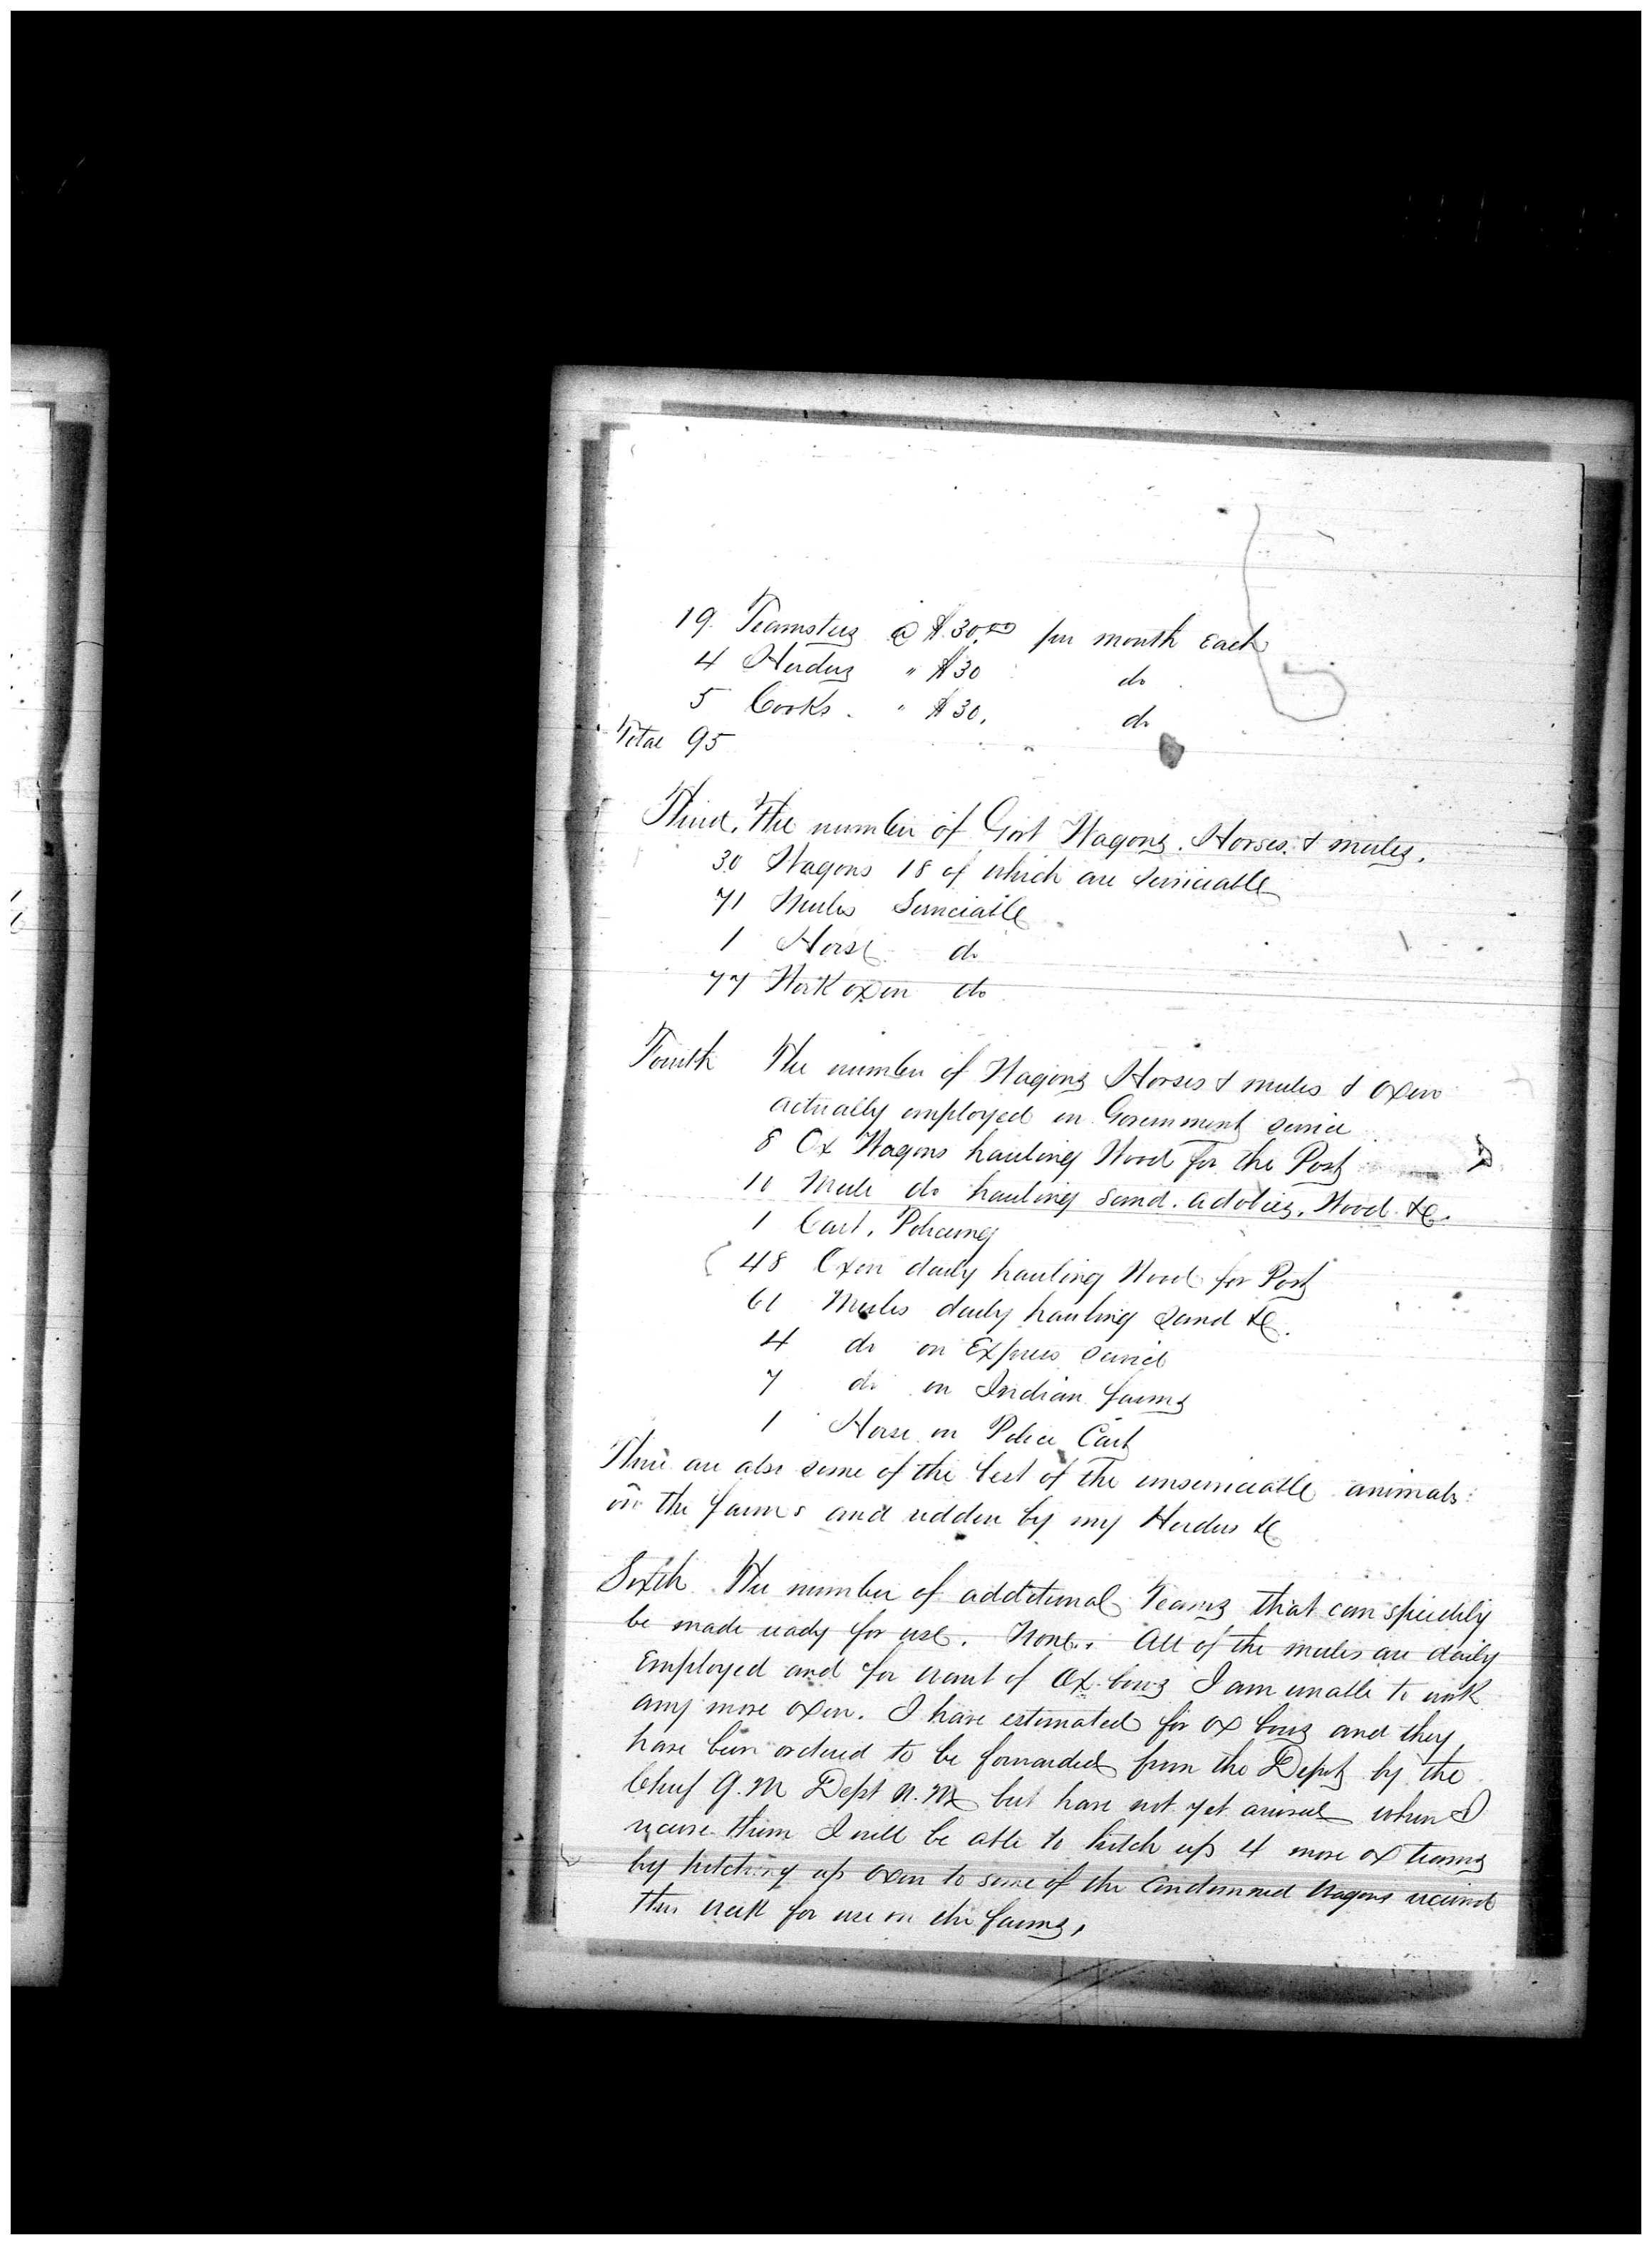 19 Teamsters @ $30.00 per month Each
4 Herders " $30 do
5 Cooks. " $30. do
Total 95
Third. The number of Govt Wagons. Horses. & mules.
30 Wagons 18 of which are serviceable
71 Mules Serviceable
1 Horse do
77 Work oxen do
Fourth The number of Wagons Horses & mules & oxen
actually employed in Government service
8 Ox Wagons hauling Wood for the Post
10 Mule do hauling sand. adobies. Wood &c.
1 Cart. Policing
48 Oxen daily hauling Wood for Post
61 Mules daily hauling Sand &c.
4 do on Express Service
7 do on Indian farms
1 Horse on Police Cart
There are also some of the best of the unserviceable animals
on the farms and ridden by my Herders &c
Sixth The number of additional Teams that can speedily
be made ready for use. None. All of the mules are daily
Employed and for want of Ox-bows I am unable to work
any more oxen. I have estimated for ox bows and they
have been ordered to be forwarded from the Depot by the
Chief Q.M Dept N.M but have not yet arrived when I
receive them I will be able to hitch up 4 more ox teams
by hitching up oxen to some of the Condemned Wagons received
this week for use on the farms,